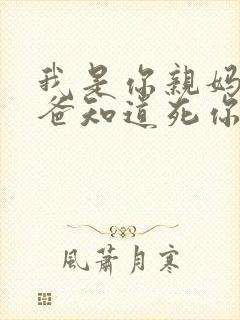 我是你親媽
爸知道死你
風蕭月寒